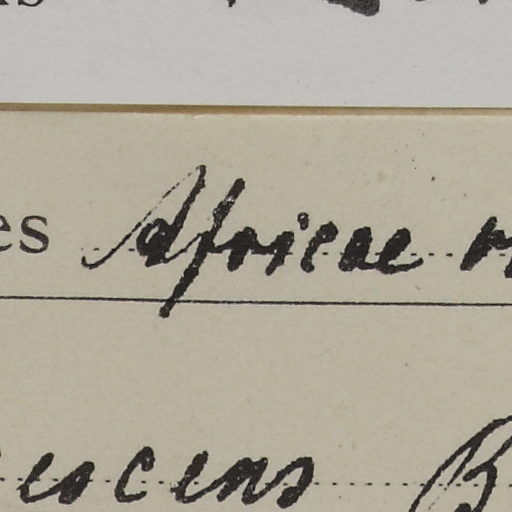 es Africae
escens B